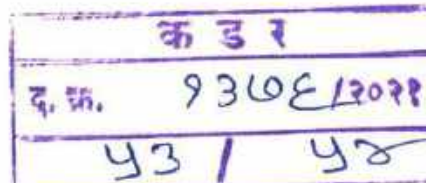 क ड र
द. क्र. १३७६/२०२१
५३ / ५४